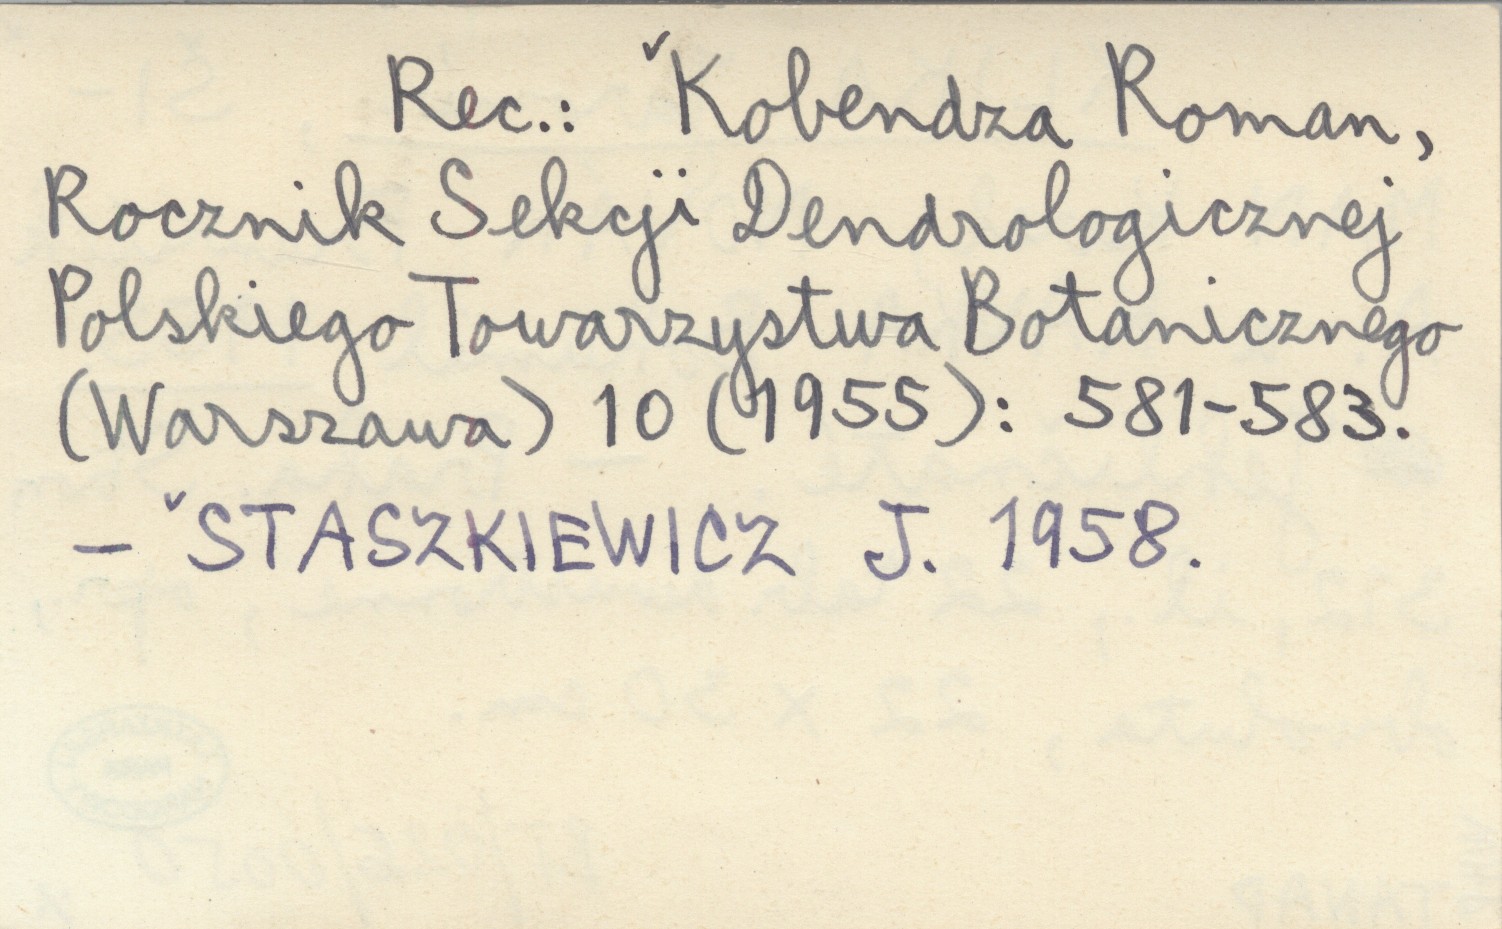 Rec.: ˇKobendza Roman,
Rocznik Sekcji Dendrologicznej
Polskiego Towarzystwa Botanicznego
(Warszawa) 10 (1955): 581-583.
– ˇSTASZKIEWICZ J. 1958.